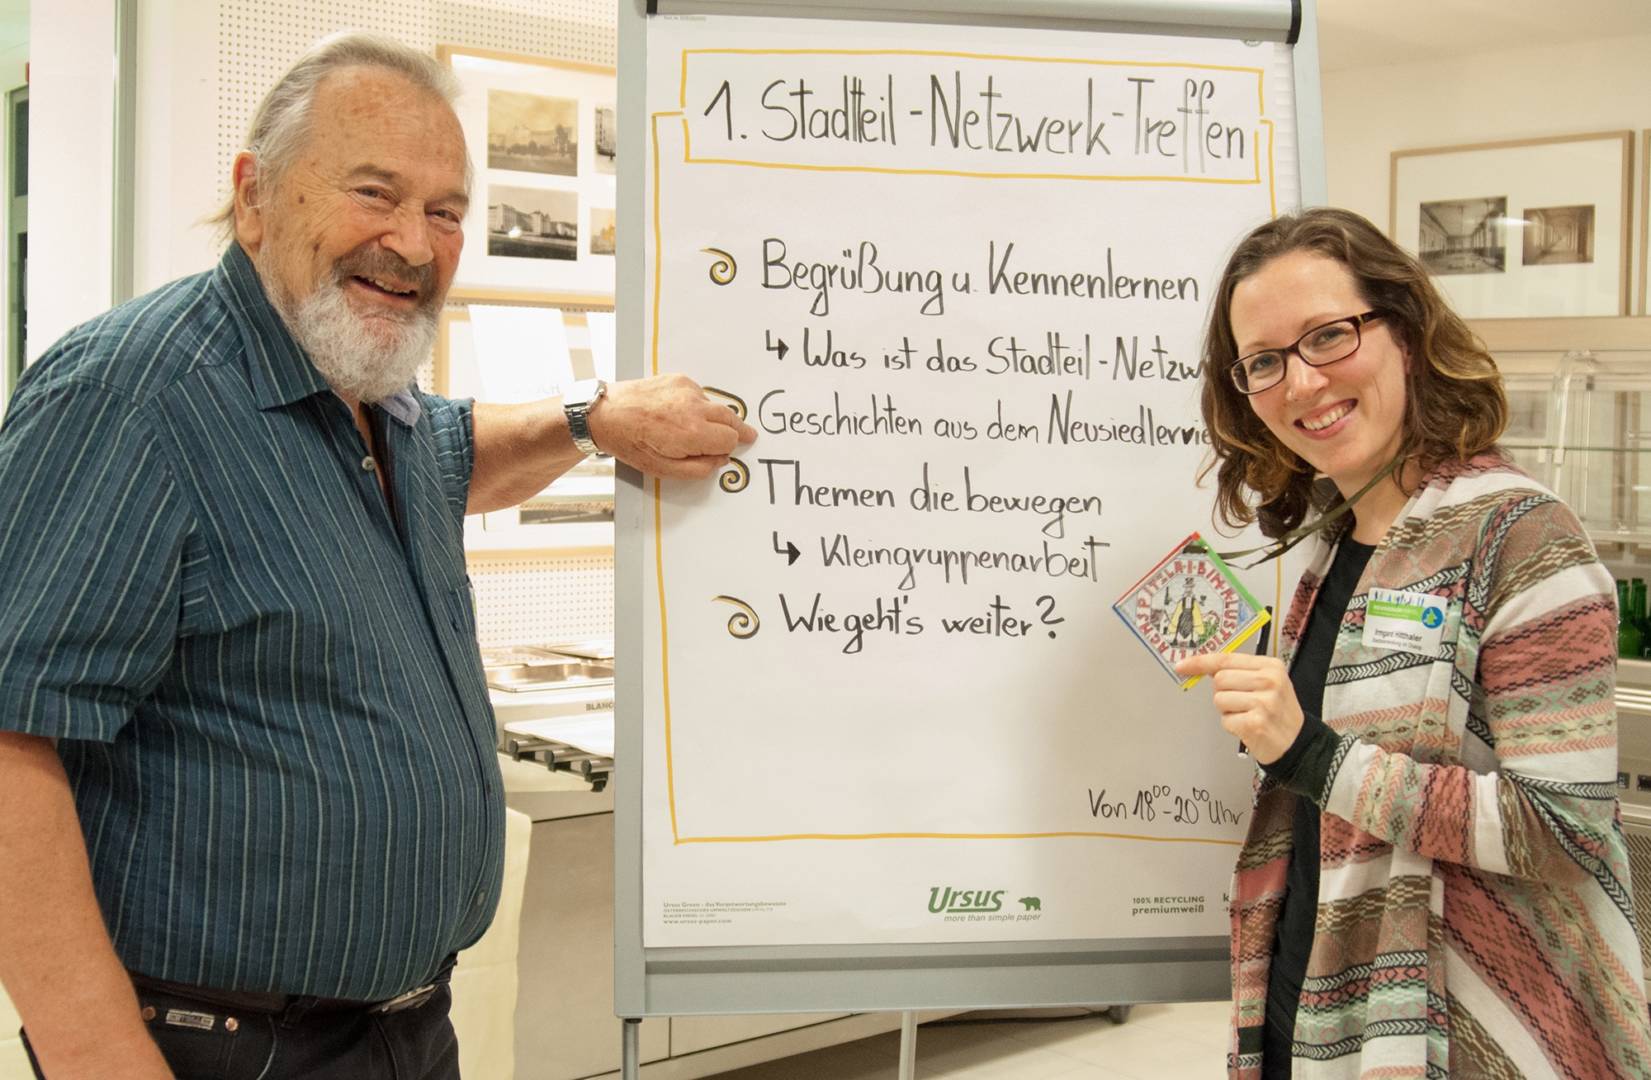 1. Stadtteil-Netzwerk-Treffen
Begrüßung u. Kennenlernen
↳ Was ist das Stadtteil-Netzw
Geschichten aus dem Neusiedlervie
Themen die bewegen
↳ Kleingruppenarbeit
Wie geht's weiter?
Von 18⁰⁰-20⁰⁰ Uhr
Ursus
more than simple paper
100% RECYCLING
premiumweiß
Ursus Green - das Verantwortungsbewusste
www.ursus-paper.com
Irmgard Hitthaler
BLANC